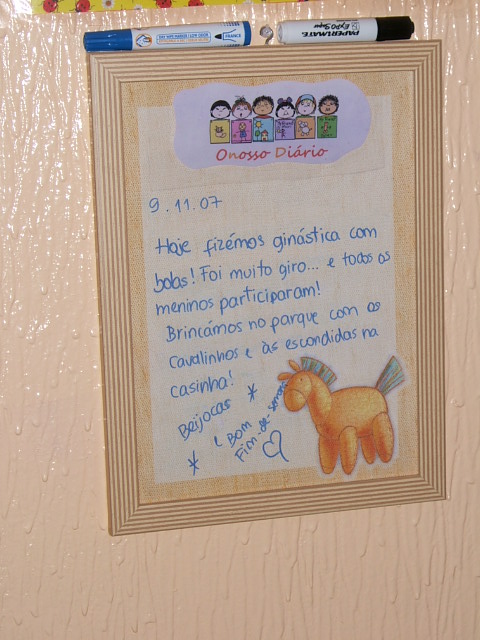 PAPERMATE
EXPO
FRANCE
Onosso Diário
9.11.07
Hoje fizémos ginástica com
bolas! Foi muito giro... e todos os
meninos participaram!
Brincámos no parque com os
Cavalinhos e às escondidas na
casinha!
Beijocas
e Bom
Fim-de-semana